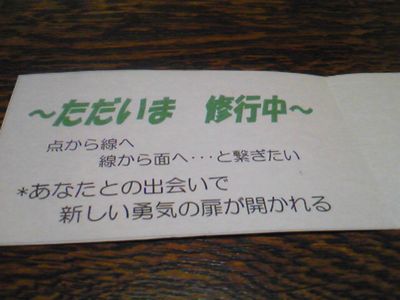 ～ただいま　修行中～
点から線へ
線から面へ・・・と繋ぎたい
*あなたとの出会いで
新しい勇気の扉が開かれる